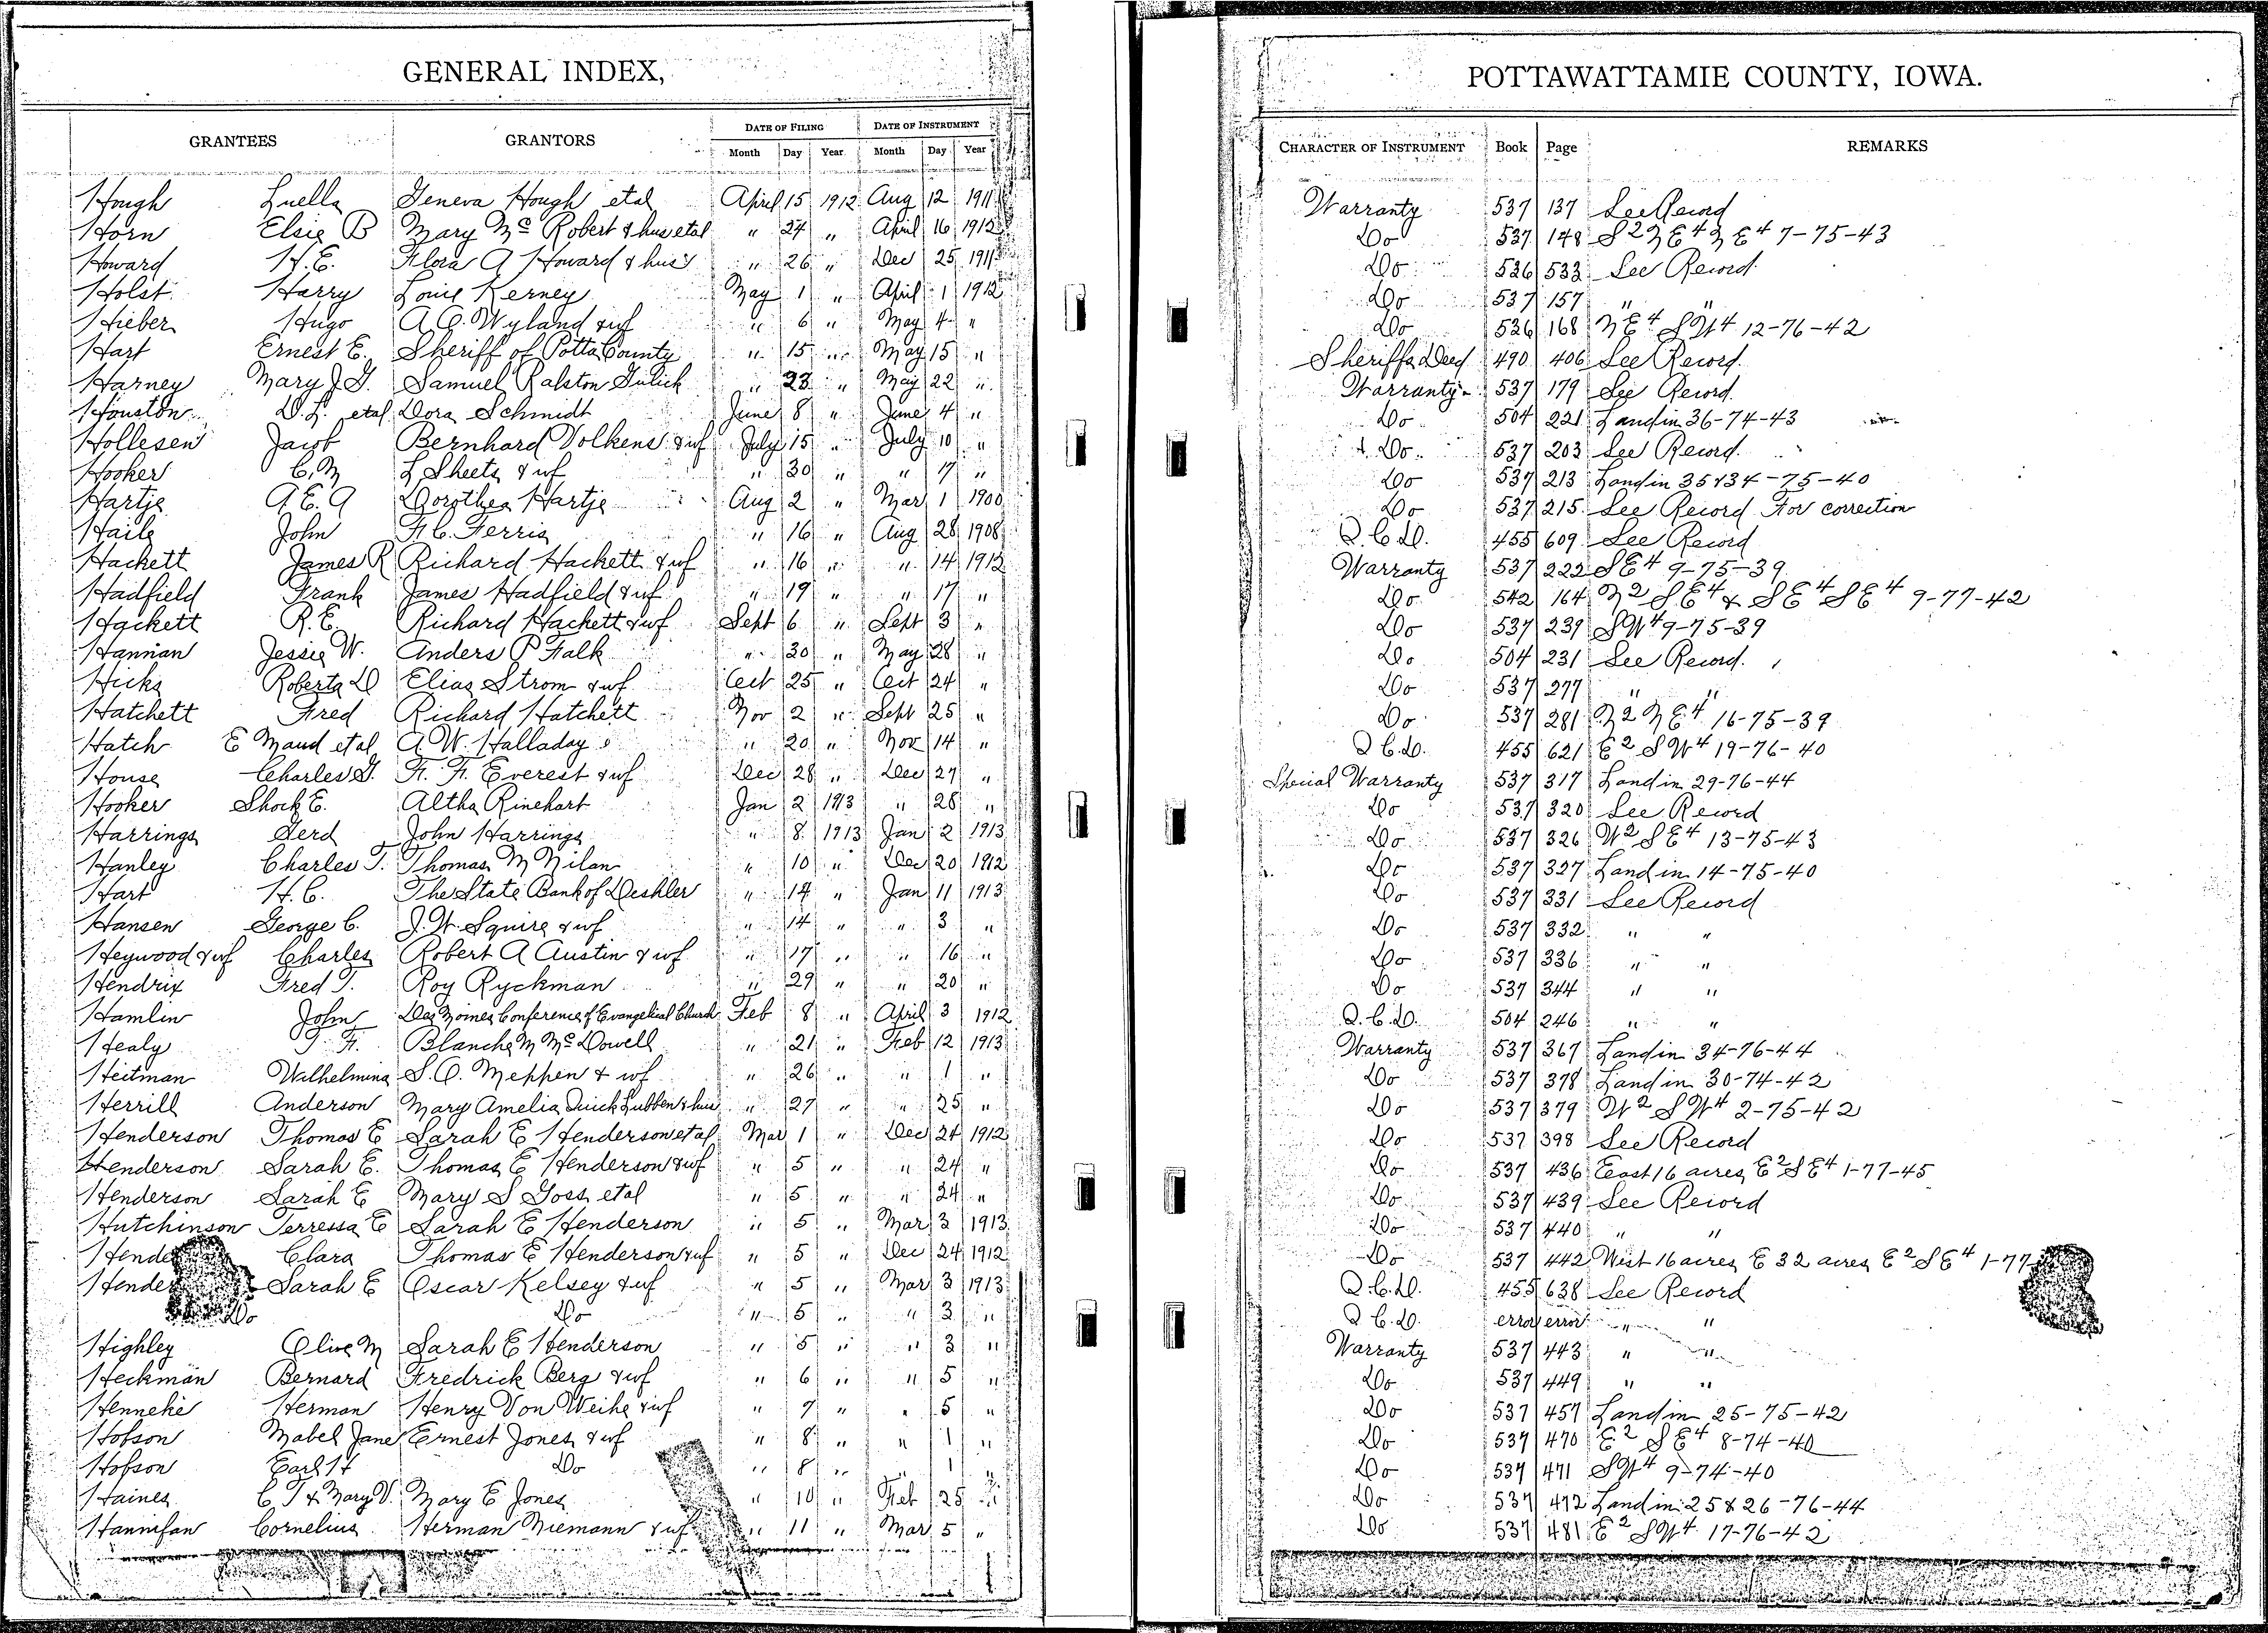 GENERAL INDEX,
GRANTEES GRANTORS DATE OF FILING DATE OF INSTRUMENT
Month Day Year Month Day Year
Hough Luella Geneva Hough etal April 15 1912 Aug 12 1911
Horn Elsie B Mary Mc Robert & hus etal " 24 " April 16 1912
Howard H.E. Flora A Howard & hus " 26 " Dec 25 1911
Holst Harry Louie Kerney May 1 " April 1 1912
Hieber Hugo A.O. Wyland & wf " 6 " May 4 "
Hart Ernest E. Sheriff of Potta County " 15 " May 15 "
Harney Mary J.G. Samuel Ralston Gulick " 23 " May 22 "
Houston D.L. etal Dora Schmidt June 8 " June 4 "
Hollesen Jacob Bernhard Volkens & wf July 15 " July 10 "
Hooker C.M L Sheets & wf " 30 " " 17 "
Hartje A.E.A Dorothea Hartje Aug 2 " Mar 1 1900
Haile John F.C. Ferris " 16 " Aug 28 1908
Hackett James R Richard Hackett & wf " 16 " " 14 1912
Hadfield Frank James Hadfield & wf " 19 " " 17 "
Hackett R.E. Richard Hackett & wf Sept 6 " Sept 3 "
Hannan Jessie W. Anders P Falk " 30 " May 28 "
Hicks Roberta D Elias Strom & wf Oct 25 " Oct 24 "
Hatchett Fred Richard Hatchett Nov 2 " Sept 25 "
Hatch E Maud etal A.W. Halladay " 20 " Nov 14 "
House Charles G. F.F. Everest & wf Dec 28 " Dec 27 "
Hooker Shock E. Altha Rinehart Jan 2 1913 " 28 "
Harrings Gerd John Harrings " 8 1913 Jan 2 1913
Hanley Charles T. Thomas M Nilan " 10 " Dec 20 1912
Hart H.C. The State Bank of Deshler " 14 " Jan 11 1913
Hansen George C. J.W. Squire & wf " 14 " " 3 "
Heywood & wf Charles Robert A Austin & wf " 17 " " 16 "
Hendrix Fred T. Roy Ryckman " 29 " " 20 "
Hamlin John Des Moines Conference of Evangelical Church Feb 8 " April 3 1912
Healy T.F. Blanche M McDowell " 21 " Feb 12 1913
Heitman Wilhelmina S.O. Meppen & wf " 26 " " 1 "
Herrill Anderson Mary Amelia Quick Lubben & hus " 27 " " 25 "
Henderson Thomas E Sarah E Henderson etal Mar 1 " Dec 24 1912
Henderson Sarah E. Thomas E Henderson & wf " 5 " " 24 "
Henderson Sarah E Mary S Goss etal " 5 " " 24 "
Hutchinson Terressa E Sarah E Henderson " 5 " Mar 3 1913
Hende Clara Thomas E Henderson & wf " 5 " Dec 24 1912
Hende Sarah E Oscar Kelsey & wf " 5 " Mar 3 1913
Do Do " 5 " " 3 "
Highley Olive M Sarah E Henderson " 5 " " 3 "
Heckman Bernard Fredrick Berg & wf " 6 " " 5 "
Henneke Herman Henry Von Weihe & wf " 7 " " 5 "
Hobson Mabel Jane Ernest Jones & wf " 8 " " 1 "
Hobson Earl H Do " 8 " " 1 "
Haines C T & Mary V. Mary E Jones " 10 " Feb 25 "
Hannifan Cornelius Herman Niemann & wf " 11 " Mar 5 "
POTTAWATTAMIE COUNTY, IOWA.
CHARACTER OF INSTRUMENT Book Page REMARKS
Warranty 537 137 See Record
Do 537 148 S2 NE4 NE4 7-75-43
Do 526 533 See Record
Do 537 157 " "
Do 526 168 NE4 SW4 12-76-42
Sheriffs Deed 490 406 See Record.
Warranty 537 179 See Record.
Do 504 221 Land in 36-74-43
Do 537 203 See Record.
Do 537 213 Land in 35&34-75-40
Do 537 215 See Record For correction
Q.C.D. 455 609 See Record
Warranty 537 222 SE4 9-75-39
Do 542 164 N2 SE4 & SE4 SE4 9-77-42
Do 537 239 SW4 9-75-39
Do 504 231 See Record.
Do 537 277 " "
Do 537 281 N2 NE4 16-75-39
Q.C.D. 455 621 E2 SW4 19-76-40
Special Warranty 537 317 Land in 29-76-44
Do 537 320 See Record
Do 537 326 W2 SE4 13-75-43
Do 537 327 Land in 14-75-40
Do 537 331 See Record
Do 537 332 " "
Do 537 336 " "
Do 537 344 " "
Q.C.D. 504 246 " "
Warranty 537 367 Land in 34-76-44
Do 537 378 Land in 30-74-42
Do 537 379 W2 SW4 2-75-42
Do 537 398 See Record
Do 537 436 East 16 acres E2 SE4 1-77-45
Do 537 439 See Record
Do 537 440 " "
Do 537 442 West 16 acres E 32 acres E2 SE4 1-77
Q.C.D. 455 638 See Record
Q.C.D. error error " "
Warranty 537 443 " "
Do 537 449 " "
Do 537 457 Land in 25-75-42
Do 537 470 E2 SE4 8-74-40
Do 537 471 SW4 9-74-40
Do 537 472 Land in 25 & 26-76-44
Do 537 481 E2 SW4 17-76-42